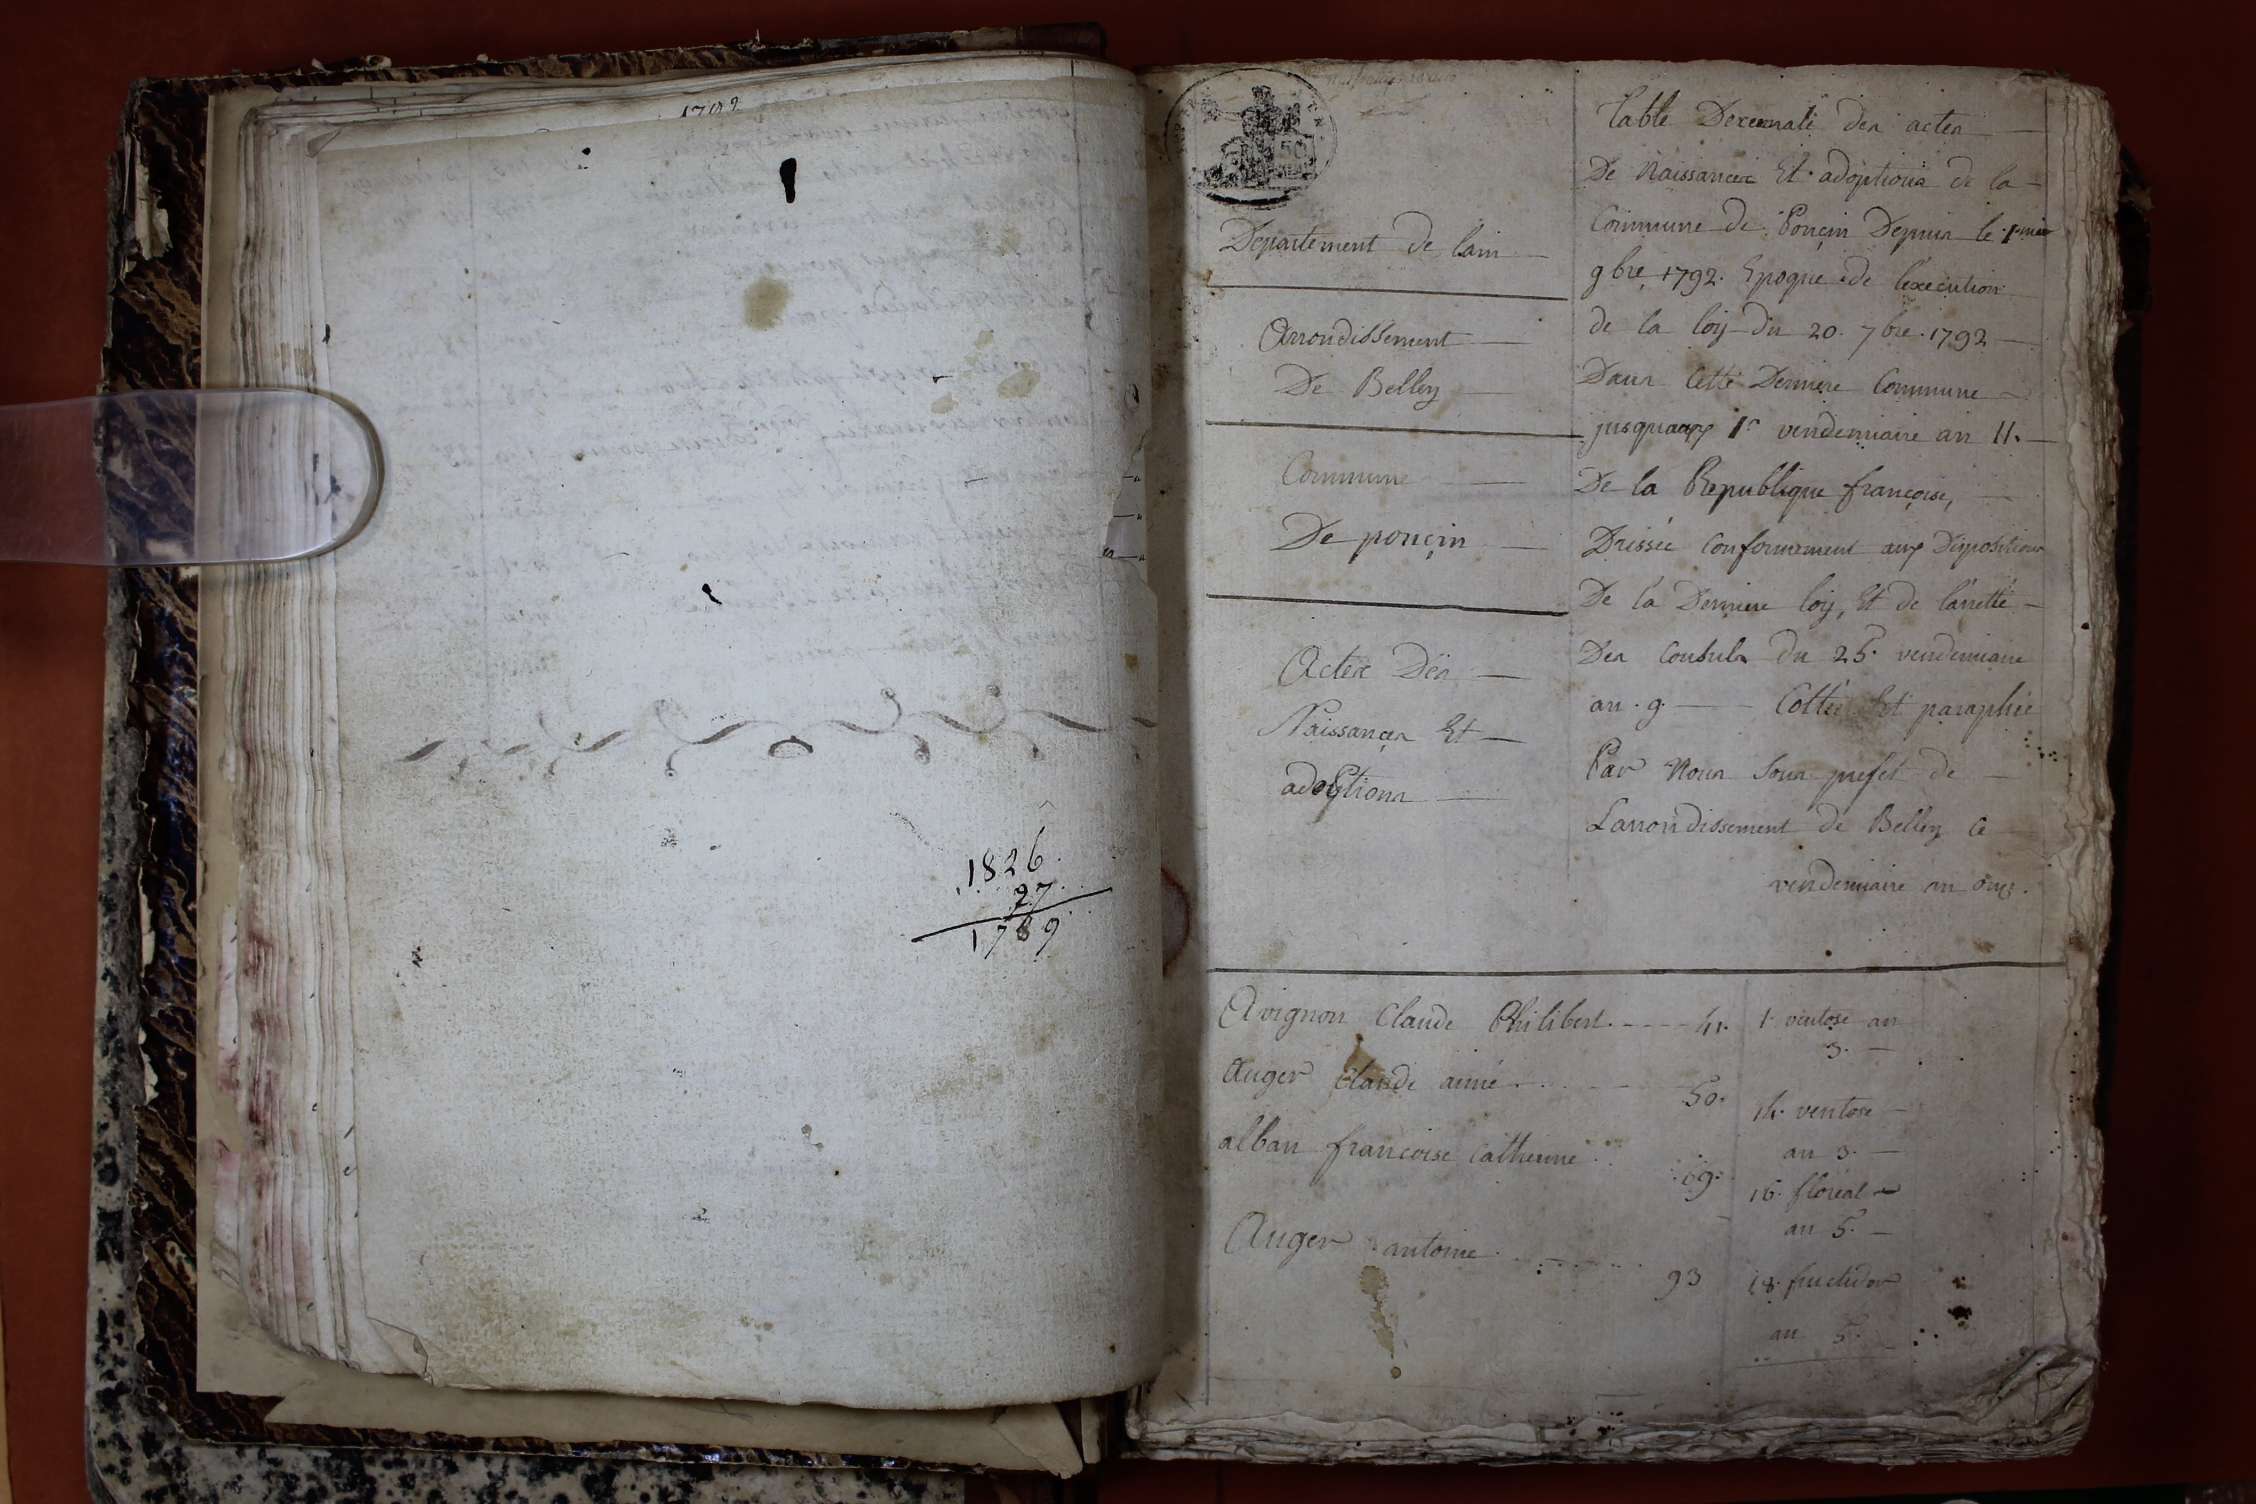 1792
1826
27
1789
Departement de lain
Arrondissement
De Belley
Commune
De ponçin
Actes Des
Naissances Et
adoptions
Table Decennale des actes
De Naissances Et adoptions de la
Commune de Ponçin Depuis le 1.mier
9bre 1792. Epoque de lexecution
de la loy du 20. 7bre. 1792
Dans Cette Derniere Commune
jusquaux 1r vendemiaire an 11.
De la Republique françoise,
Dréssée Conformement aux Dispositions
De la Derniere loy, Et de l'arretté
Des Consuls du 25. vendemiaire
an . 9. Cottée Et paraphée
Par Nous Sous prefet de
Larrondissement de Belley Ce
vendemiaire an onze.
Avignon Claude Philibert. 41. 1. ventose an
3.
Auger Claude aimé 50. 14. ventose
an 3.
alban francoise Catherine 69. 16. floréal
an 5.
Auger antoine 93 18. fructidor
an 5.